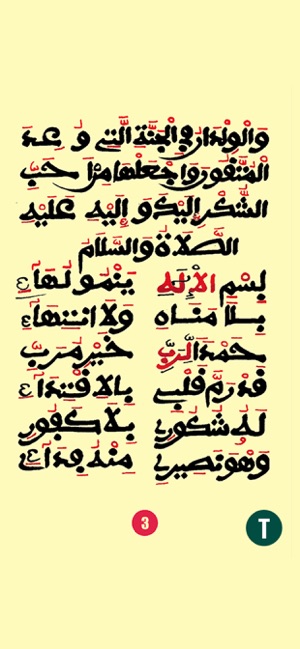 والولدان في الجنة التي وعد
المتقون واجعلها من احب
الشكر إليك وإليه عليه
الصلاة والسلام
بسم الإله ينمو لهاء
بلا مناه ولا انتهاء
حمد الرب خير مرب
قد رم قلبي بالاقتداء
له شكور بلا كفور
وهو نصير منه فداء
3
T